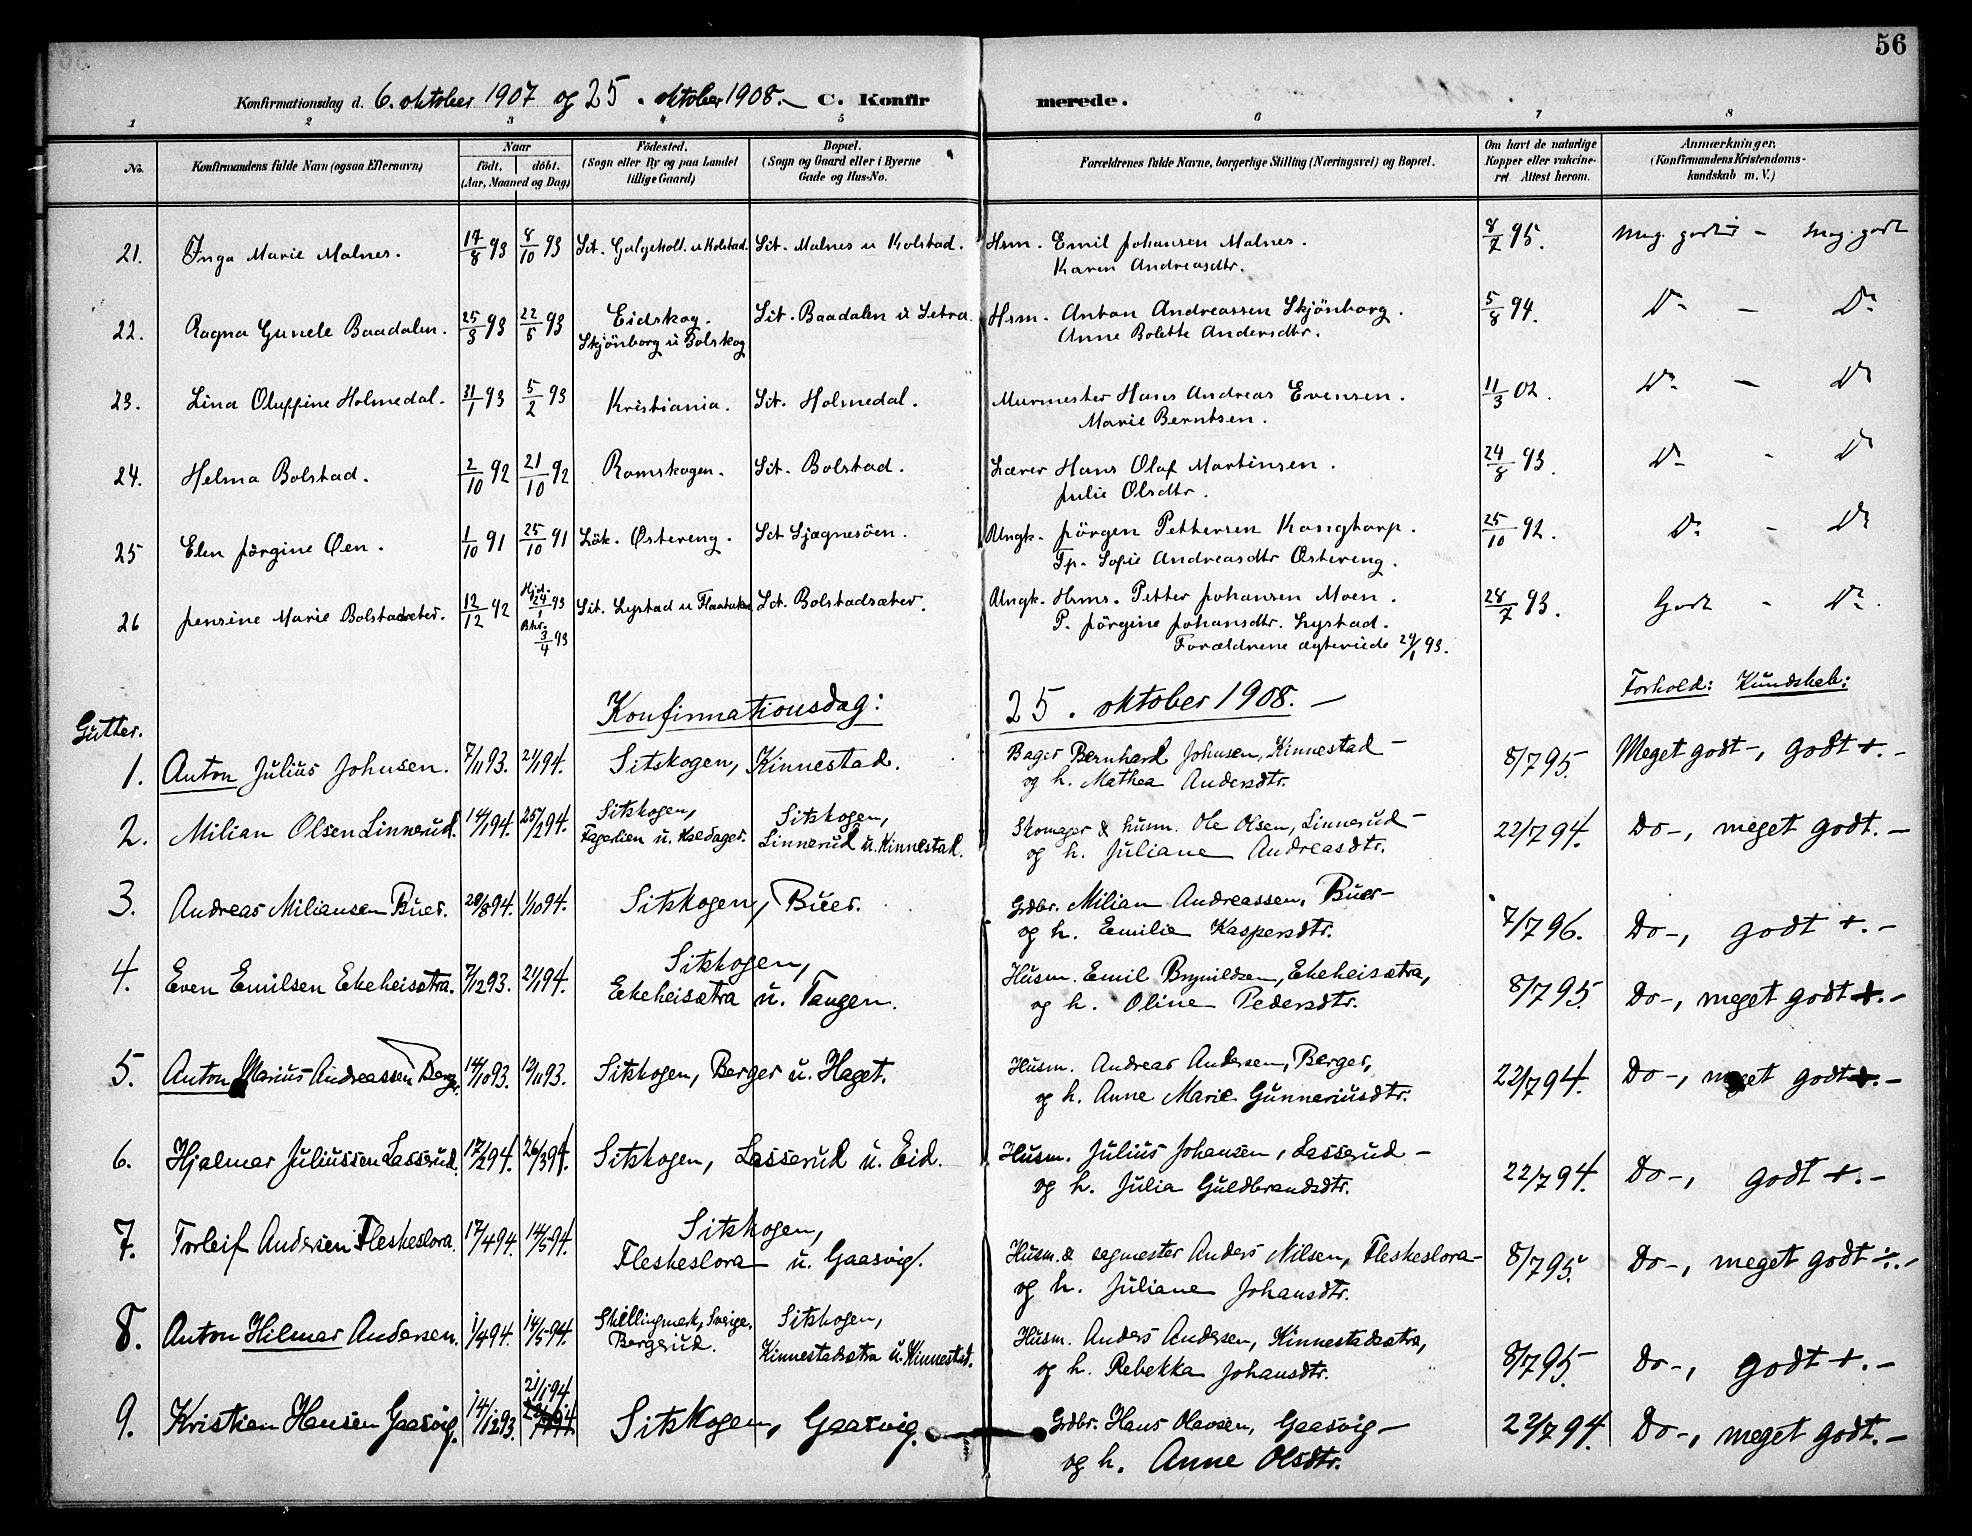 56
Konfirmationsdag d. 6. oktober 1907 og 25. oktober 1908.– C. Konfirmerede.
1 2 3 4 5 6 7 8
No. Konfirmandens fulde Navn (ogsaa Efternavn) Naar født, døbt. (Aar, Maaned og Dag) Fødested. (Sogn eller By og paa Landet tillige Gaard) Bopæl. (Sogn og Gaard eller i Byerne Gade og Hus-No. Forældrenes fulde Navne, borgerlige Stilling (Næringsvei) og Bopæl. Om havt de naturlige Kopper eller vakcineret. Attest herom. Anmærkninger. (Konfirmandens Kristendomskundskab m. V.)
21. Inga Marie Malnes. 17/8 93 8/10 93 Sit. Galgeholt. u Kolstad. Sit. Malnes u Kolstad. Hsm. Emil Johansen Malnes. 8/7 95. Meg. godt – Meg. godt
Karen Andreasdtr.
22. Ragna Gunele Baadalen. 25/3 93 22/5 93 Eidskog. Skjönborg u Bolskog Sit. Baadalen u Setra. Hsm. Anton Andreassen Skjönborg. 5/8 94. Do – Do
Anne Bolette Andersdtr.
23. Lina Oluffine Holmedal. 31/1 93 5/2 93 Kristiania. Sit. Holmedal. Murmester Hans Andreas Evensen. 11/3 02. Do – Do
Marie Berntsen.
24. Helma Bolstad. 2/10 92 21/10 92 Romskogen. Sit. Bolstad. Lærer Hans Olaf Martinsen. 24/8 93. Do – Do
Julie Olsdtr.
25 Elen Jørgine Øen. 1/10 91 25/10 91 Lök. Østereng. Sit Sjøgnesöen. Ungk. Jörgen Pettersen Kongtorp. 25/10 92. Do – Do
Tp. Sofie Andreasdtr Østereng.
26 Jensine Marie Bolstadsæter. 12/12 92 Hjd. 24/1 93 Bkr. 3/4 93 Sit. Lystad u Sit. Bolstadsæter. Ungk. Hsms. Petter Johansen Moen. 28/7 93. Godt – Do.
P. Jörgine Johansdtr. Lystad.
Forældrene ægteviede 29/1 93.
Forhold: Kundskab:
Gutter. Konfirmationsdag: 25. oktober 1908. –
1. Anton Julius Johnsen. 7/11 93. 21/1 94. Sitskogen, Kinnestad. Bager Bernhard Johnsen, Kinnestad – 8/7 95. Meget godt –, godt +. –
og h. Mathea Andersdtr.
2. Milian Olsen Linnerud. 14/1 94. 25/2 94. Sitskogen, Fagerlien u. Hsedager. Sitskogen, Linnerud u. Kinnestad. Skomager & husm. Ole Olsen, Linnerud – 22/7 94. Do –, meget godt. –
og h. Juliane Andreasdtr.
3. Andreas Miliansen Buer. 28/8 94. 1/10 94. Sitskogen, Buer. Grdbr. Milian Andreassen, Buer – 7/7 96. Do –, godt +. –
og h. Emilie Kaspersdtr.
4. Even Emilsen Ekeheisætra. 7/12 93. 21/1 94. Sitskogen, Ekeheisætra u. Tangen. Husm. Emil Brynildsen, Ekeheisætra, 8/7 95 Do –, meget godt +. –
og h. Oline Pedersdtr.
5. Anton Marius Andreassen Berger. 14/10 93. 12/11 93. Sitskogen, Berger u. Haget. Husm. Andreas Andersen, Berger, 22/7 94. Do –, meget godt +. –
og h. Anne Marie Gunneriusdtr.
6. Hjalmar Juliussen Lasserud. 17/2 94. 26/3 94. Sitskogen, Lasserud u. Eid. Husm. Julius Johansen, Lasserud – 22/7 94. Do –, godt +. –
og h. Julia Guldbrandsdtr.
7. Torleif Andersen Fleskeslora. 17/4 94. 14/5 94. Sitskogen, Fleskeslora u. Gaasvig. Husm. & sagmester Anders Nilsen, Fleskeslora – 8/7 95. Do –, meget godt ÷. –
og h. Juliane Johansdtr.
8. Anton Hilmar Andersen. 1/4 94. 14/5 94. Skillingmark, Sverige. Bergerud. Sitskogen, Kinnestadsætra u. Kinnestad. Husm. Anders Andersen, Kinnestadsætra, 8/7 95. Do –, godt +. –
og h. Rebekka Johansdtr.
9. Kristian Hansen Gaasvig. 14/12 93. 21/1 94. Sitskogen, Gaasvig. Grdbr. Hans Olavsen, Gaasvig – 22/7 94. Do –, meget godt. –
og h. Anne Olsdtr.